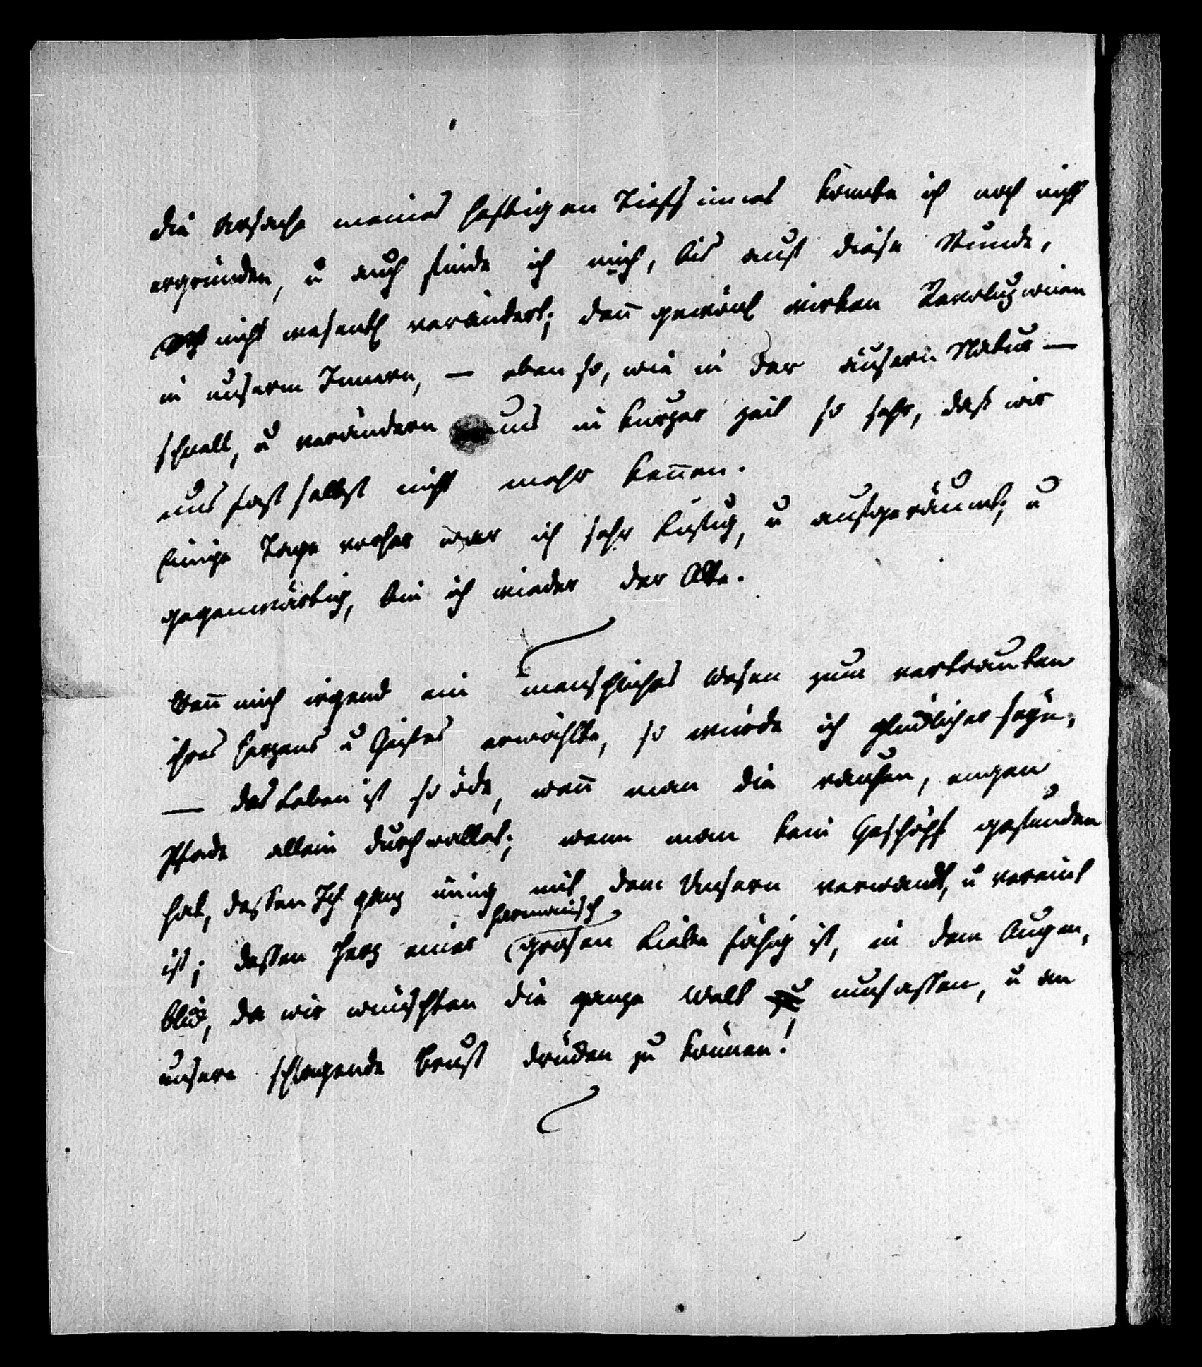 die Ursache meines heftigen Tiefsinnes konnte ich noch nicht
ergründen, u auch finde ich mich, bis auf diese Stunde,
nicht wesentl verändert; den̅ gewönl wirken Revoluzionen
in unserm Innern, — eben so, wie in der äusern Natur —
schnell, u verändern uns in kurzer Zeit so sehr, daß wir
uns fast selbst nicht mehr ken̅en.
Einige Tage vorher war ich sehr lustig, u aufgeräumt; u
gegenwärtig, bin ich wieder der Alte.
Wen̅ mich irgend ein menschliches Wesen zum vertrauten
ihres Herzens u Geistes erwählte, so würde ich glücklicher seyn;
— das Leben ist so öde, wen̅ man die rauhen, engen
Pfade allein durchwallet; wenn man kein Geschöpf gefunden
hat, dessen Ich ganz innig mit dem Unsern verwandt, u vereint
harmonisch
ist; dessen Herz einer grosen Liebe fähig ist, in dem Augen,
blick, da wir wünschten die ganze Welt zu umfassen, u an
unsere schlagende Brust drücken zu können!